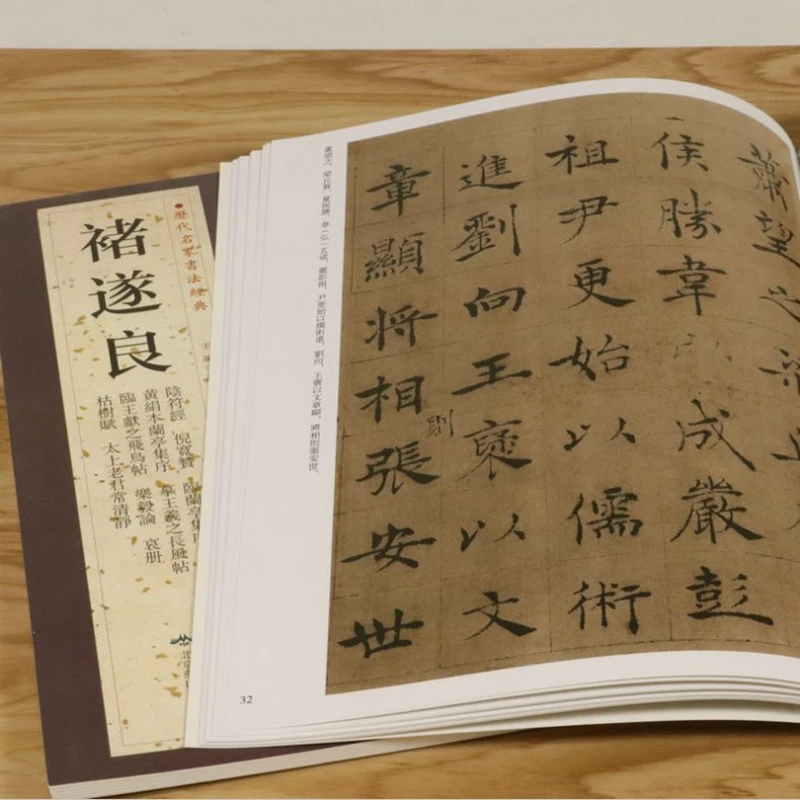 歷代名家書法經典
褚遂良
陰符經 倪寬贊 臨蘭亭集
黃絹本蘭亭集序 摹王羲之長風帖
臨王獻之飛鳥帖 樂毅論 哀册
枯樹賦 太上老君常清靜
蕭望之
侯勝韋 成嚴彭
祖尹更始以儒術
進劉向王褒以文
章顯將相張安世
則
蕭望之、梁丘賀、夏侯勝、韋(弘)玄成、嚴彭祖、尹更始以儒術進，劉向、王褒以文章顯，將相則張安世、
32